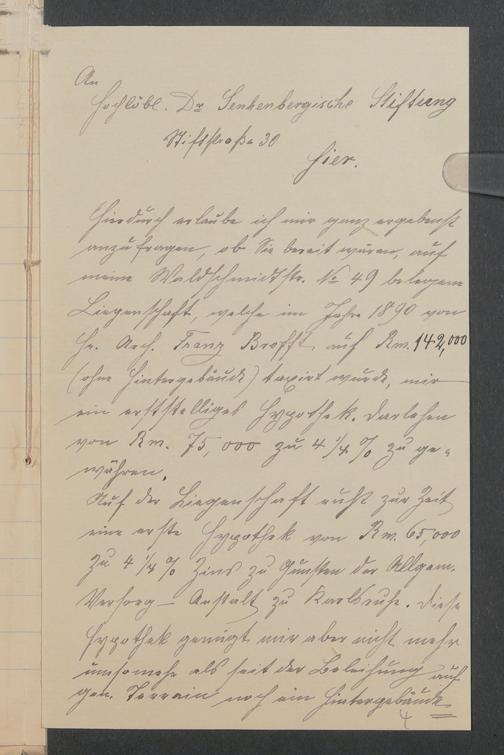 An
Hochlöbl. Dr Senkenbergische Stiftung
Stiftstraße 30
Hier.
Hierdurch erlaube ich mir ganz ergebenst
anzufragen, ob Sie bereit wären, auf
meine Waldschmidtstr. No 49 belegene
Liegenschaft, welche im Jahre 1890 von
Hr. Arch. Franz Brofft auf Rm. 142,000
(ohne Hintergebäude) taxirt wurde, mir
ein erststelliges Hypothek. Darlehen
von Rm. 75,000 zu 4 1/4 % zu ge-
währen.
Auf der Liegenschaft ruht zur Zeit
eine erste Hypothek von Rm. 65,000
zu 4 1/4 % Zins zu Gunsten der Allgem.
Versorg-Anstalt zu Karlsruhe. Diese
Hypothek genügt mir aber nicht mehr
umsomehr als seit der Beleihung auf
gen. Terrain noch ein Hintergebäude